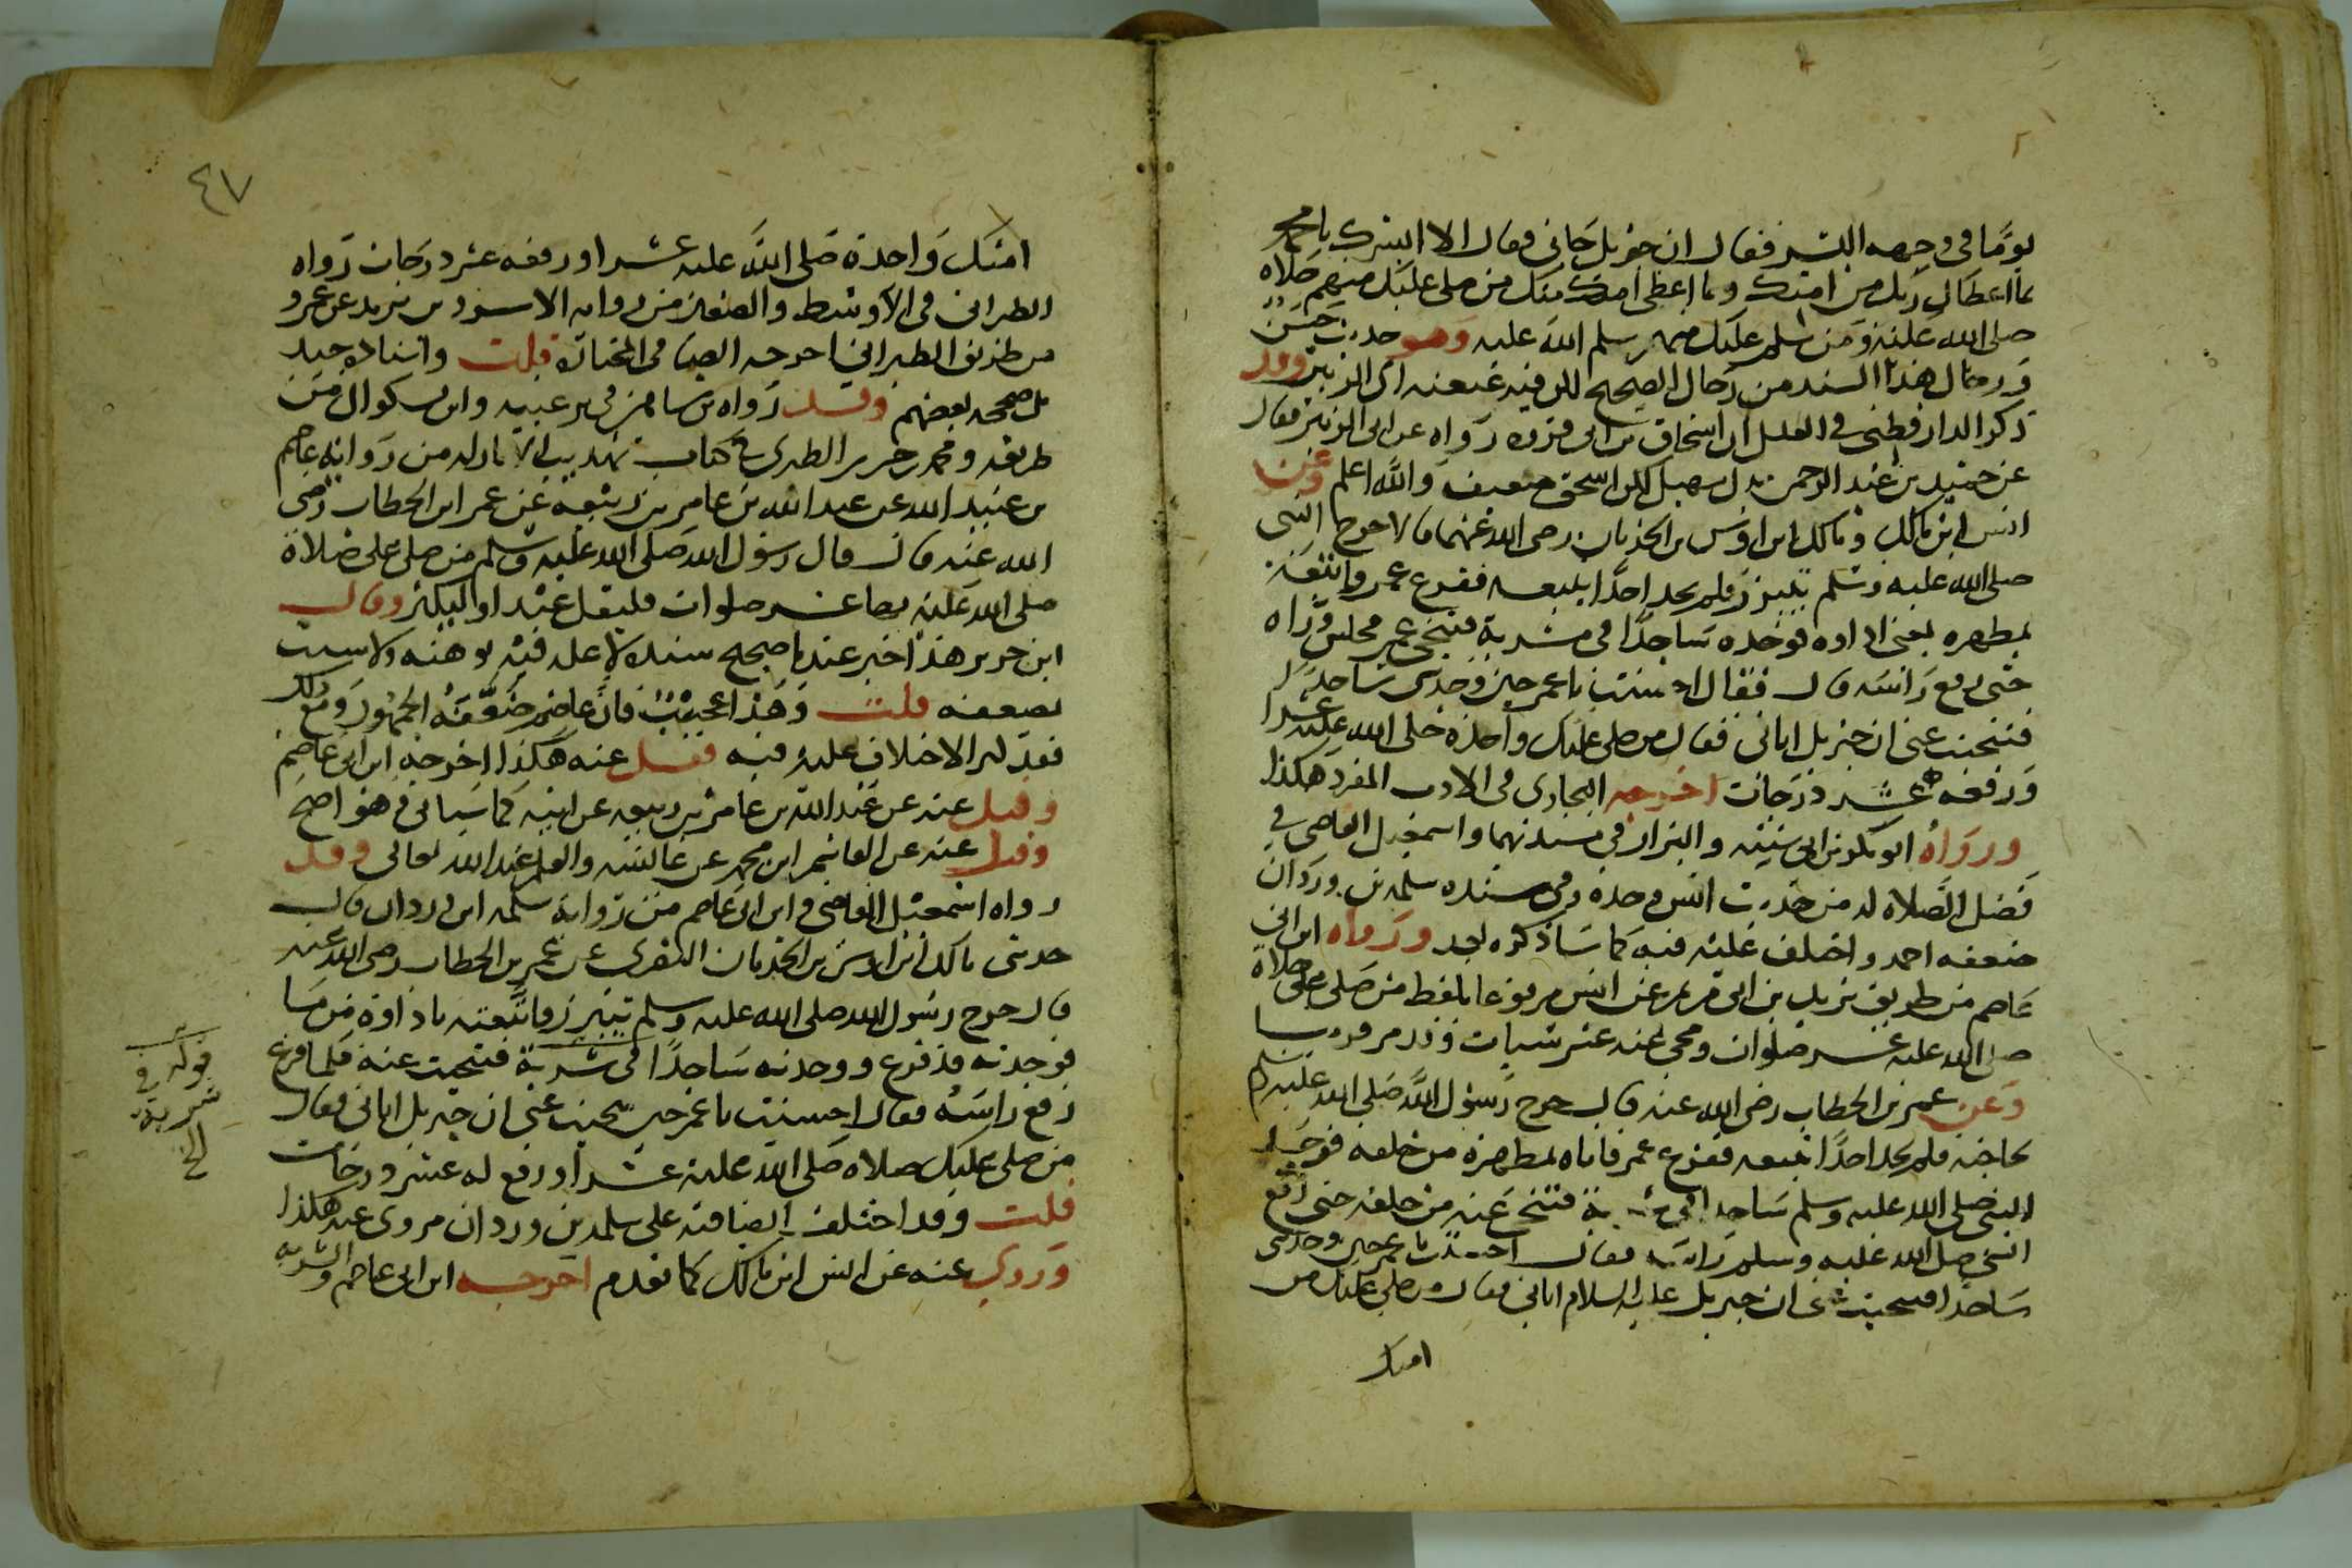 يومًا في وجهه البشر فقال ان جبريل جاني فقال الا ابشرك يا محمد
بما اعطاك ربك من امتك وبما اعطى امتك منك من صلى عليك منهم صلاة
صلى الله عليه ومن سلم عليك منهم سلم الله عليه وهو حديث حسن
ورجال هذا السند من رجال الصحيح لكن فيه عنعنه ابي الزبير وقد
ذكر الدارقطني في العلل ان اسحاق بن ابي فروه رواه عن ابي الزبير فقال
عن حميد بن عبد الرحمن بدل سهيل لكن اسحق ضعيف والله اعلم وعن
انس ابن مالك ومالك ابن اوس بن الحدثان رضي الله عنهما قالا خرج النبي
صلى الله عليه وسلم يتبرز فلم يجد احدًا يتبعه ففزع عمر واتبعه
بمطهره يعني اداوه فوجده ساجدًا في مشربة فتنحى عمر فجلس وراه
حتى رفع راسه قال فقال احسنت يا عمر حين وجدتني ساجدًا
فتنحيت عني ان جبريل اتاني فقال من صلى عليك واحدة صلى الله عليه عشرا
ورفعه عشر درجات اخرجه البخاري في الادب المفرد هكذا
ورواه ابو بكر بن ابي شيبه والبزار في مسنديهما واسمعيل القاضي في
فضل الصلاه له من حديث انس وحده وفي سنده سلمه بن وردان
ضعفه احمد واختلف عليه فيه كما ساذكره بعد ورواه ابن ابي
عاصم من طريق بريد بن ابي مريم عن انس مرفوعا بلفظ من صلى علي صلاة
صلى الله عليه عشر صلوات ومحى عنه عشر سيات وقد مر قريبا
وعن عمر بن الخطاب رضي الله عنه قال خرج رسول الله صلى الله عليه وسلم
لحاجته فلم يجد احدًا يتبعه ففزع عمر فاتاه بمطهرة من خلفه فوجد
النبي صلى الله عليه وسلم ساجدا في مشربة فتنحى عنه من خلفه حتى رفع
النبي صلى الله عليه وسلم راسه فقال احسنت يا عمر حين وجدتني
ساجدا فتنحيت عني ان جبريل عليه السلام اتاني فقال من صلى عليك من
امتك
٤٧
امتك واحدة صلى الله عليه عشرا ورفعه عشر درجات رواه
الطبراني في الاوسط والصغير من روايه الاسود بن يزيد عن عمر و
من طريق الطبراني اخرجه الضيا في المختارة قلت واسناده جيد
بل صححه بعضهم وقد رواه بن شاهين في ترغيبه وابن بشكوال من
طريقه ومحمد بن جرير الطبري في كتاب تهذيب الاثار له من رواية عاصم
بن عبيد الله عن عبد الله بن عامر بن ربيعه عن عمر ابن الخطاب رضي
الله عنه قال قال رسول الله صلى الله عليه وسلم من صلى علي صلاة
صلى الله عليه بها عشر صلوات فليقل عبد او ليكثر وقال
ابن جرير هذا خبر عندنا صحيح سنده لا علة فيه توهنه ولا سبب
يضعفه قلت وهذا عجيب فان عاصم ضعفه الجمهور ومع ذلك
فقد كثر الاختلاف عليه فيه فقيل عنه هكذا اخرجه ابن ابي عاصم
وقيل عنه عن عبد الله بن عامر بن ربيعه عن ابيه كما سياتي وهو اصح
وقيل عنه عن القاسم ابن محمد عن عائشه والعلم عند الله تعالى وقد
رواه اسمعيل القاضي وابن ابي عاصم من رواية سلمه ابن وردان قال
حدثني مالك ابن اوس بن الحدثان النصري عن عمر بن الخطاب رضي الله عنه
قال خرج رسول الله صلى الله عليه وسلم يتبرز واتبعته باداوة من ما
فوجدته قد فرغ ووجدته ساجدًا في شربة فتنحيت عنه فلما فرغ
رفع راسه فقال احسنت يا عمر حين تنحيت عني ان جبريل اتاني فقال
من صلى عليك صلاه صلى الله عليه عشرا ورفع له عشر درجات
قلت وقد اختلف ايضا فيه على سلمه بن وردان فروي عنه هكذا
وروي عنه عن انس ابن مالك كما تقدم اخرجه ابن ابي عاصم والشربه
قوله في
شربة
الخ